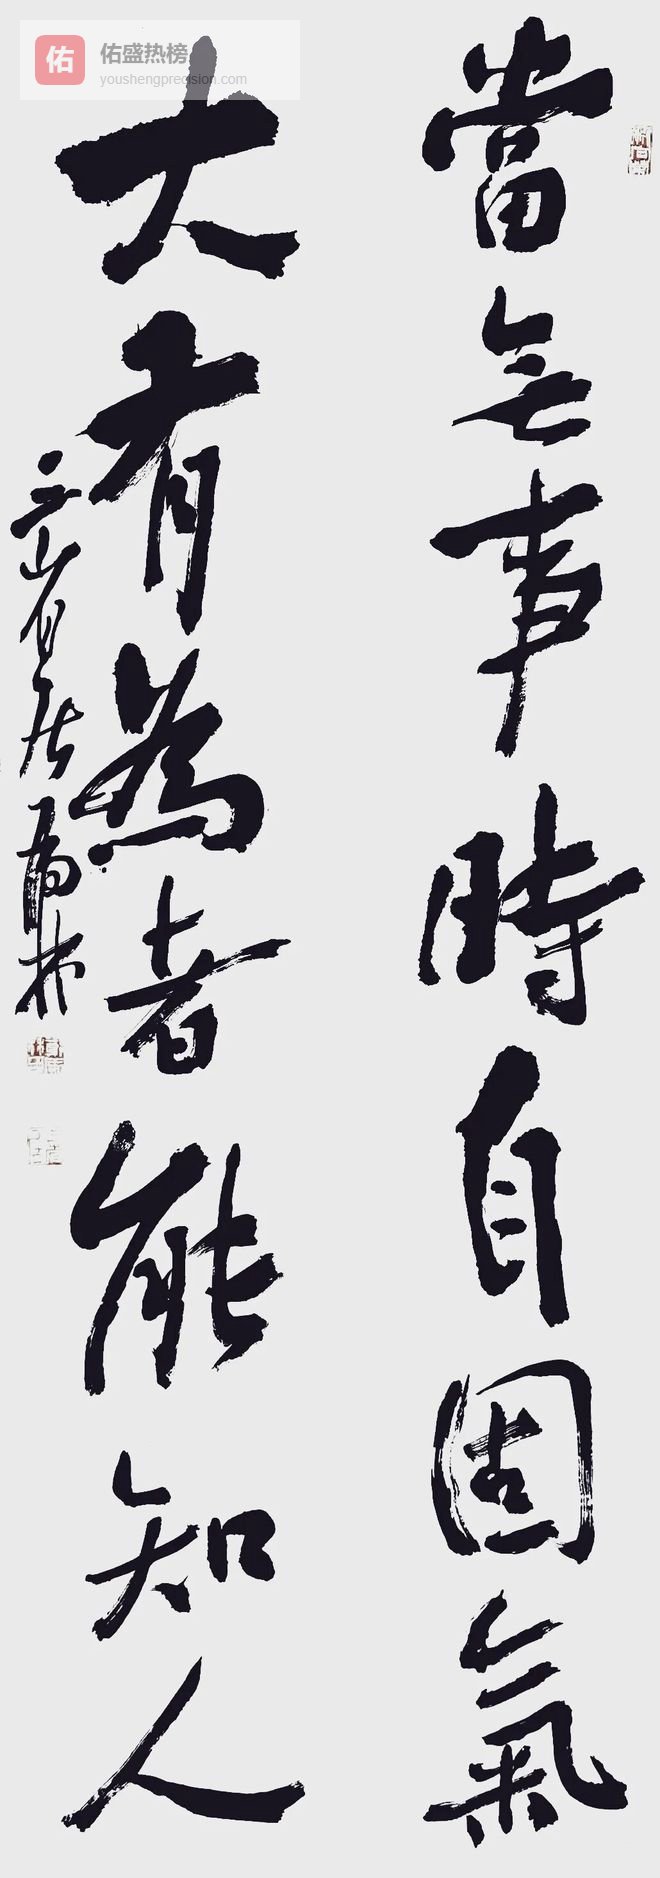 佑
佑盛热榜
youshengprecision.com
當無事時自固氣
大有為者能知人